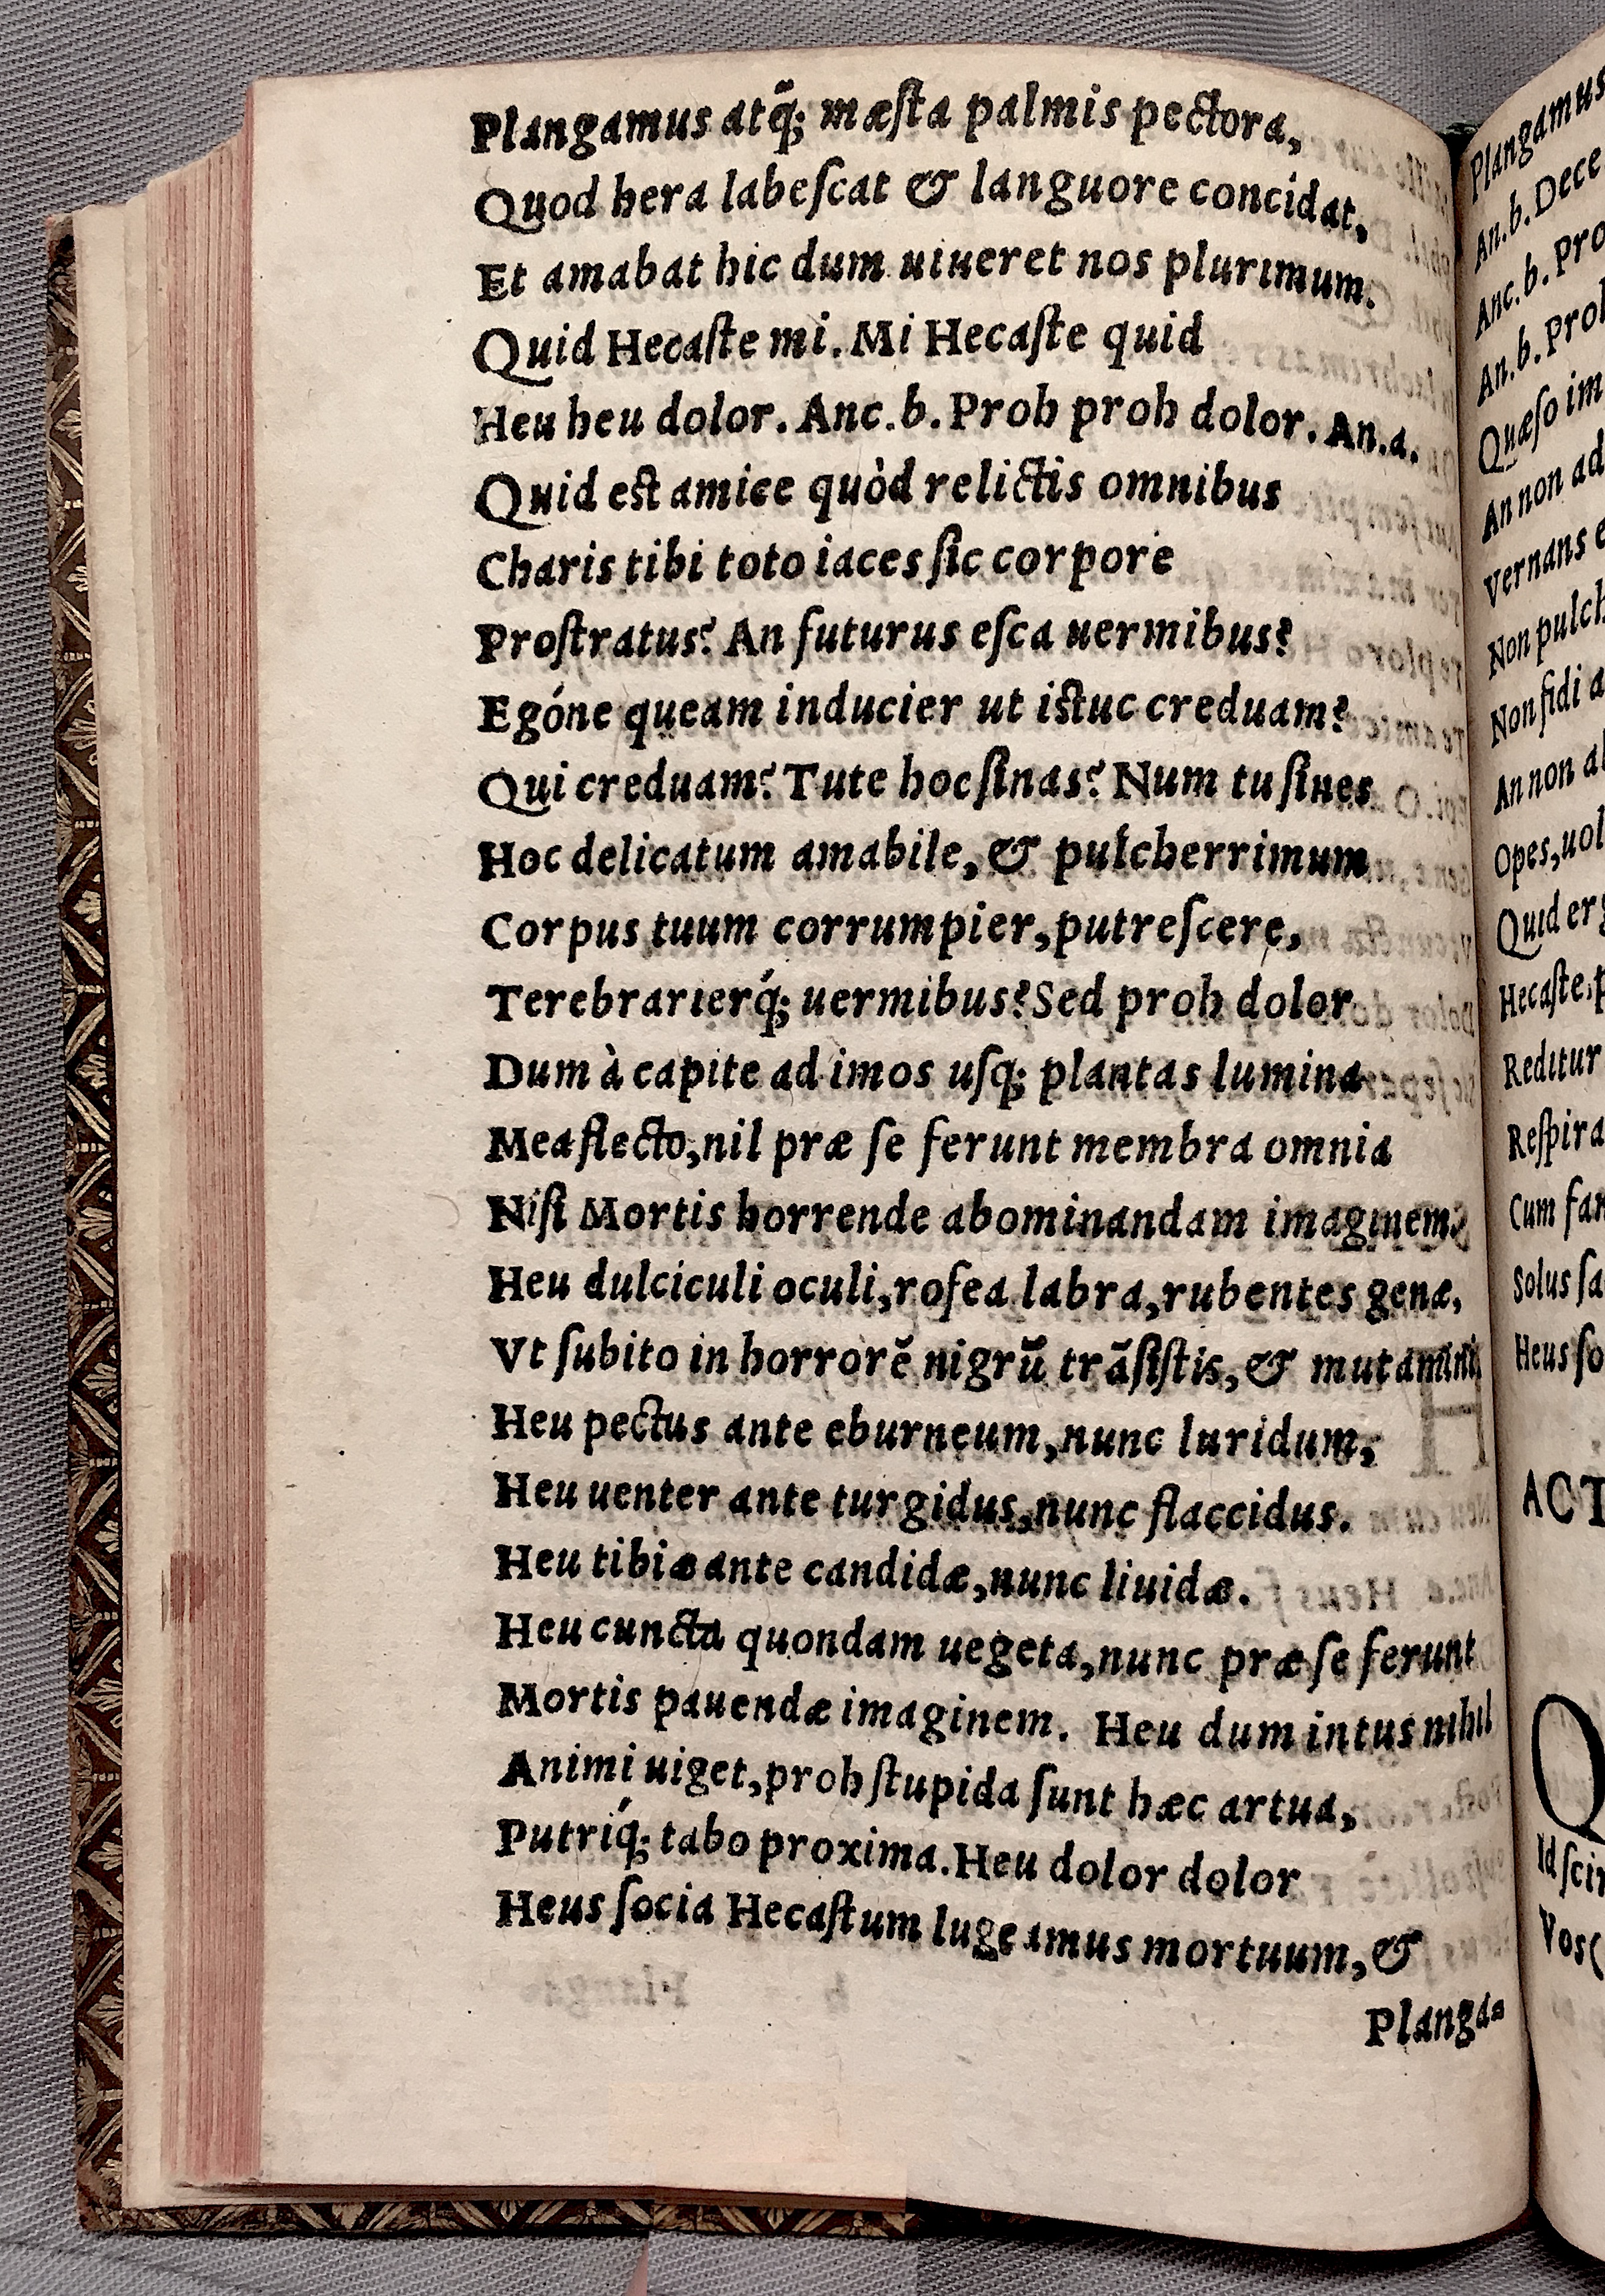 Plangamus atq́; mæſta palmis pectora,
Quod hera labeſcat & languore concidat,
Et amabat hic dum uiueret nos plurimum.
Quid Hecaſte mi. Mi Hecaſte quid
Heu heu dolor. Anc. b. Proh proh dolor. An. a.
Quid est amice quòd relictis omnibus
Charis tibi toto iaces ſic corpore
Proſtratus? An futurus eſca uermibus?
Egóne queam inducier ut istuc creduam?
Qui creduam? Tute hoc ſinas? Num tu ſines
Hoc delicatum amabile, & pulcherrimum
Corpus tuum corrumpier, putreſcere,
Terebrarierq́; uermibus? Sed proh dolor
Dum à capite ad imos uſq; plantas lumina
Mea flecto, nil præ ſe ferunt membra omnia
Niſi Mortis horrende abominandam imaginem.
Heu dulciculi oculi, roſea labra, rubentes genæ,
Vt ſubito in horrorē nigrū trāſiſtis, & mutamini,
Heu pectus ante eburneum, nunc luridum,
Heu uenter ante turgidus, nunc flaccidus.
Heu tibiæ ante candidæ, nunc liuidæ.
Heu cuncta quondam uegeta, nunc præ ſe ferunt
Mortis pauendæ imaginem. Heu dum intus nihil
Animi uiget, proh ſtupida ſunt hæc artua,
Putriq́; tabo proxima. Heu dolor dolor
Heus ſocia Hecaſtum lugeamus mortuum, &
Planga=
Plangamus
An. b. Dece
Anc. b. Pro
An. b. Proh
Quæſo im
An non ad
Vernans e
Non pulch
Non fidi a
An non al
Opes, uol
Quid erg
Hecaſte, p
Reditur
Reſpira
Cum fan
Solus ſa
Heus ſo
ACT
Q
Id ſcir
Vos (